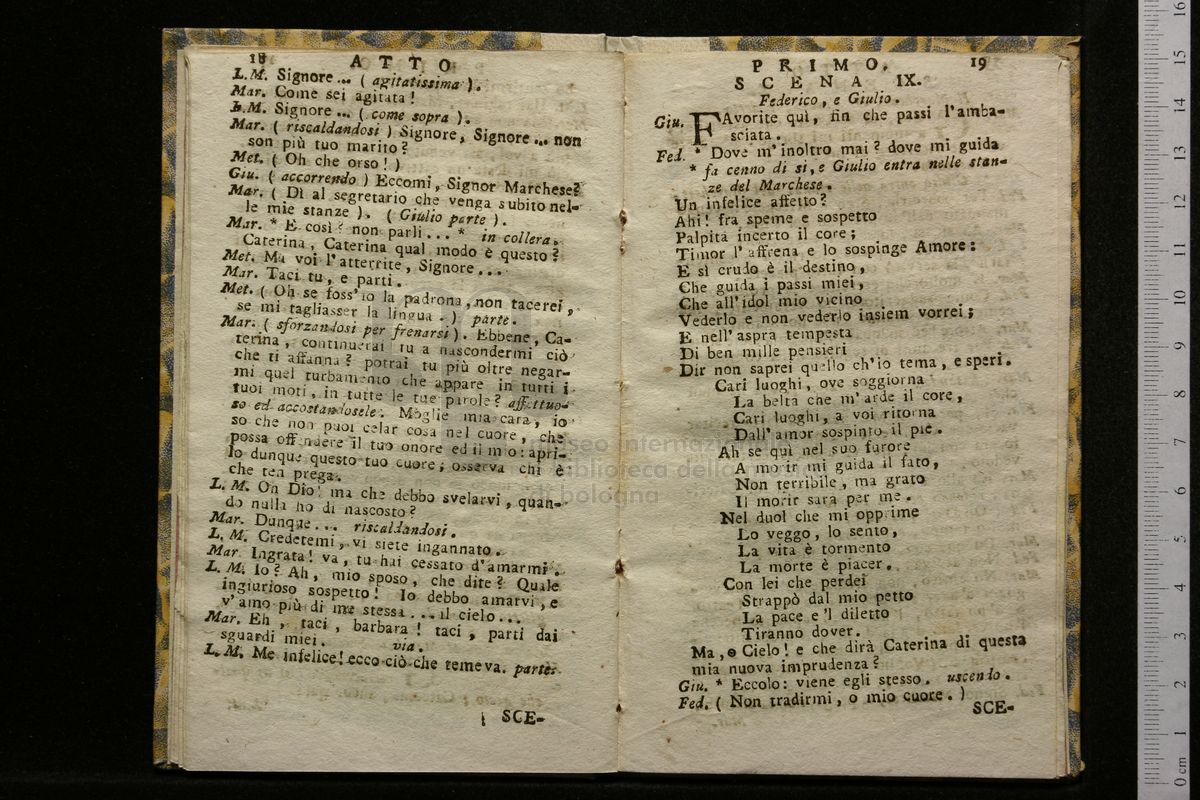 18 ATTO
L.M. Signore ... ( agitatissima ).
Mar. Come sei agitata!
L.M. Signore ... ( come sopra ).
Mar. ( riscaldandosi ) Signore, Signore ... non
son più tuo marito?
Met. ( Oh che orso! )
Giu. ( accorrendo ) Eccomi, Signor Marchese?
Mar. ( Dì al segretario che venga subito nel-
le mie stanze ). ( Giulio parte ).
Mar. * E così? non parli ... * in collera.
Caterina, Caterina qual modo è questo?
Met. Ma voi l'atterrite, Signore ...
Mar. Taci tu, e parti.
Met. ( Oh se foss'io la padrona, non tacerei,
se mi tagliasser la lingua. ) parte.
Mar. ( sforzandosi per frenarsi ). Ebbene, Ca-
terina, continuerai tu a nascondermi ciò
che ti affanna? potrai tu più oltre negar-
mi quel turbamento che appare in tutti i
tuoi moti, in tutte le tue parole? affettuo-
so ed accostandosele. Moglie mia cara, io
so che non puoi celar cosa nel cuore, che
possa offendere il tuo onore ed il mio: apri-
lo dunque questo tuo cuore; osserva chi è
che ten prega.
L. M. Oh Dio! ma che debbo svelarvi, quan-
do nulla ho di nascosto?
Mar. Dunque ... riscaldandosi.
L. M. Credetemi, vi siete ingannato.
Mar. Ingrata! va, tu hai cessato d'amarmi.
L. M. Io? Ah, mio sposo, che dite? Quale
ingiurioso sospetto! Io debbo amarvi, e
v'amo più di me stessa ... il cielo ...
Mar. Eh, taci, barbara! taci, parti dai
sguardi miei. via.
L. M. Me infelice! ecco ciò che temeva. parte.
SCE-
PRIMO. 19
SCENA IX.
Federico, e Giulio.
Giu. FAvorite quì, fin che passi l'amba-
sciata.
Fed. * Dove m'inoltro mai? dove mi guida
* fa cenno di si, e Giulio entra nelle stan-
ze del Marchese.
Un infelice affetto?
Ahi! fra speme e sospetto
Palpita incerto il core;
Timor l'affrena e lo sospinge Amore:
E sì crudo è il destino,
Che guida i passi miei,
Che all'idol mio vicino
Vederlo e non vederlo insiem vorrei;
E nell'aspra tempesta
Di ben mille pensieri
Dir non saprei quello ch'io tema, e speri.
Cari luoghi, ove soggiorna
La beltà che m'arde il core,
Cari luoghi, a voi ritorna
Dall'amor sospinto il piè.
Ah se quì nel suo furore
A morir mi guida il fato,
Non terribile, ma grato
Il morir sarà per me.
Nel duol che mi opprime
Lo veggo, lo sento,
La vita è tormento
La morte è piacer.
Con lei che perdei
Strappò dal mio petto
La pace e 'l diletto
Tiranno dover.
Ma, o Cielo! e che dirà Caterina di questa
mia nuova imprudenza?
Giu. * Eccolo: viene egli stesso. uscendo.
Fed. ( Non tradirmi, o mio cuore. )
SCE-
museo internazionale
biblioteca della musica
di bologna
0 cm 1 2 3 4 5 6 7 8 9 10 11 12 13 14 15 16